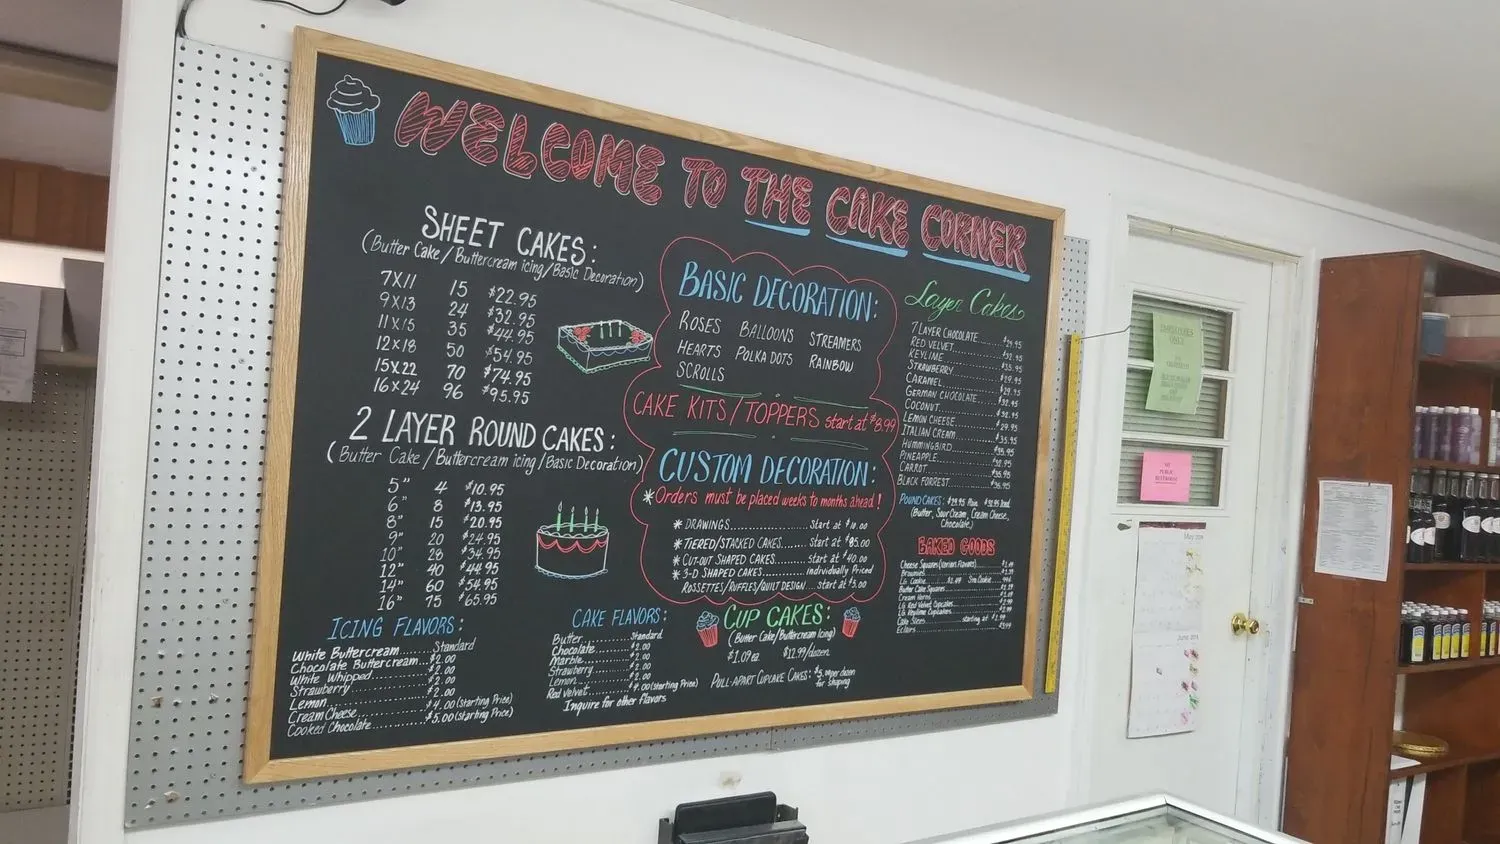 WELCOME TO THE CAKE CORNER
SHEET CAKES:
(Butter Cake / Buttercream icing / Basic Decoration)
7X11 15 $22.95
9X13 24 $32.95
11X15 35 $44.95
12X18 50 $54.95
15X22 70 $74.95
16X24 96 $95.95
2 LAYER ROUND CAKES:
(Butter Cake / Buttercream icing / Basic Decoration)
5" 4 $10.95
6" 8 $13.95
8" 15 $20.95
9" 20 $24.95
10" 28 $34.95
12" 40 $44.95
14" 60 $54.95
16" 75 $65.95
ICING FLAVORS:
White Buttercream........Standard
Chocolate Buttercream...$2.00
White Whipped...........$2.00
Strawberry..............$2.00
Lemon...................$2.00
Cream Cheese............$4.00 (starting Price)
Cooked Chocolate........$5.00 (starting Price)
CAKE FLAVORS:
Butter..........Standard
Chocolate.......$2.00
Marble..........$2.00
Strawberry......$2.00
Lemon...........$2.00
Red Velvet......$4.00 (starting Price)
Inquire for other flavors
BASIC DECORATION:
ROSES BALLOONS STREAMERS
HEARTS POLKA DOTS RAINBOW
SCROLLS
CAKE KITS / TOPPERS start at $8.99
CUSTOM DECORATION:
* Orders must be placed weeks to months ahead!
* DRAWINGS.................. Start at $10.00
* TIERED/STACKED CAKES....... Start at $85.00
* CUT-OUT SHAPED CAKES....... start at $40.00
* 3-D SHAPED CAKES........... individually Priced
ROSSETTES/RUFFLES/QUILT DESIGN..... start at $3.00
CUP CAKES:
(Butter Cake/Buttercream Icing)
$1.09 ea. $12.99/dozen
PULL-APART CUPCAKE CAKES: per dozen
for shaping
Layer Cakes
7 LAYER CHOCOLATE........$29.95
RED VELVET...............$32.95
KEYLIME..................$35.95
STRAWBERRY...............$29.95
CARAMEL..................$29.95
GERMAN CHOCOLATE.........$32.95
COCONUT..................$32.95
LEMON CHEESE.............$29.95
ITALIAN CREAM............$35.95
HUMMINGBIRD..............$35.95
PINEAPPLE................$32.95
CARROT...................$35.95
BLACK FORREST............$36.95
POUND CAKES: $29.95 Plain
(Butter, Sour Cream, Cream Cheese,
Chocolate)
BAKED GOODS
Cheese Squares (Various Flavors)
Brownies
LG. Cookie Sm. Cookie
Butter Cake Squares
Cream Horns
LG Red Velvet Cupcakes
LG Keylime Cupcakes
Cake Slices........starting at
Eclairs
NO
PUBLIC
RESTROOM
May
June